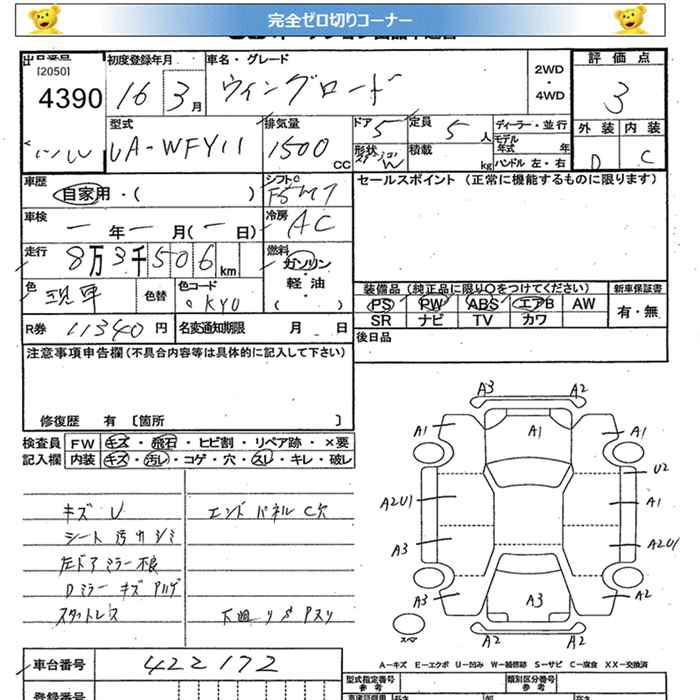 完全ゼロ切りコーナー
[2050]
4390
初度登録年月
16 3月
車名・グレード
ウィングロード
2WD
・
4WD
評価点
3
外装 内装
D C
型式
UA-WFY11
排気量
1500 CC
ドア 5
形状 W
定員 5 人
積載 kg
ディーラー・並行
モデル年式 年
ハンドル 左・右
車歴
自家用・( )
シフト
F5 MT
セールスポイント(正常に機能するものに限ります)
車検
ー年ー月(ー日)
冷房
AC
走行
8万3千506km
燃料
ガソリン
・
軽油
・
( )
色
色替
色コード
KY0
装備品(純正品に限り○をつけてください)
PS PW ABS エアB AW
SR ナビ TV カワ
新車保証書
有・無
R券 11340円
名変通知期限 月 日
後日品
注意事項申告欄(不具合内容等は具体的に記入して下さい)
修復歴 有 [箇所 ]
検査員 FW キズ・飛石・ヒビ割・リペア跡・×要
記入欄 内装 キズ・汚レ・コゲ・穴・スレ・キレ・破レ
キズ U
シート 汚れ シミ
左ドアミラー不良
Dミラー キズ
スタットレス
エンドパネル C穴
下廻り サビ
A3 A2
A1 A1 A1
U2
A2U1 A1
A3 A2U1
A3 A3 A2
スペア
A2 A2
A-キズ E-エクボ U-凹み W-補修跡 S-サビ C-腐食 XX-交換済
車台番号 422172
型式指定番号
参考
類別区分番号
参考
登録番号